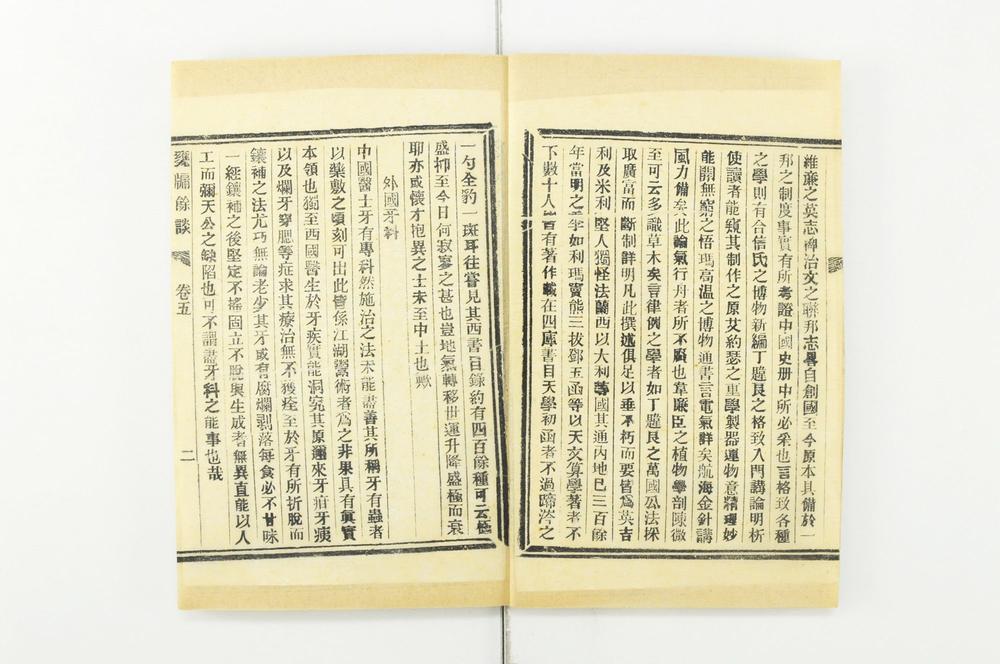 維廉之英志裨治文之聯邦志畧自創國至今原本具備於一
邦之制度事實有所考證中國史册中所必采也言格致各種
之學則有合信氏之博物新編丁韙良之格致入門講論明析
使讀者能窺其制作之原艾約瑟之重學製器運物意精理妙
能開無窮之悟瑪高温之博物通書言電氣詳矣航海金針講
風力備矣此論氣行舟者所不廢也韋廉臣之植物學剖陳微
至可云多識草木矣言律例之學者如丁韙良之萬國公法採
取廣富而斷制詳明凡此撰述俱足以垂不朽而要皆爲英吉
利及米利堅人獨怪法蘭西以大利等國其通內地已三百餘
年當明之季如利瑪竇熊三拔鄧玉函等以天文算學著者不
下數十人皆有著作載在四庫書目天學初函者不過蹄涔之
一勺全豹一斑耳往嘗見其西書目錄約有四百餘種可云極
盛抑至今日何寂寥之甚也豈地氣轉移世運升降盛極而衰
耶亦或懷才抱異之士未至中土也歟
外國牙科
中國醫士牙有專科然施治之法未能盡善其所稱牙有蟲者
以藥敷之頃刻可出此皆係江湖鬻術者爲之非果具有眞實
本領也獨至西國醫生於牙疾實能洞究其原邇來牙疳牙痰
以及爛牙穿腮等症求其療治無不獲痊至於牙有所折脫而
鑲補之法尤巧無論老少其牙或有腐爛剥落每食必不甘味
一經鑲補之後堅定不搖固立不脫與生成者無異直能以人
工而彌天公之缺陷也可不謂盡牙科之能事也哉
甕牖餘談 卷五 二